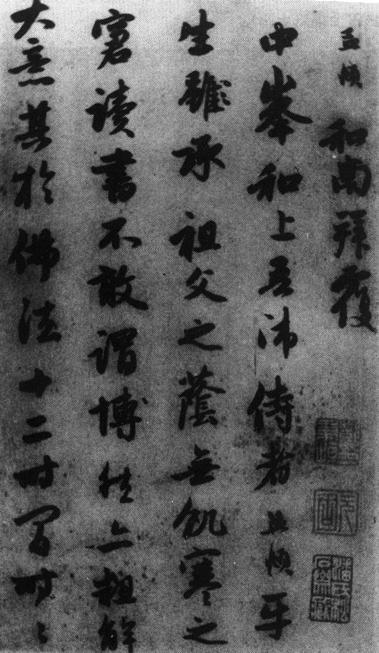 孟頫和南拜覆
中峯和上吾师侍者孟頫平
生雖承祖父之蔭無飢寒之
窘讀書不敢謂博然亦粗解
大意其於佛法十二时間时〻